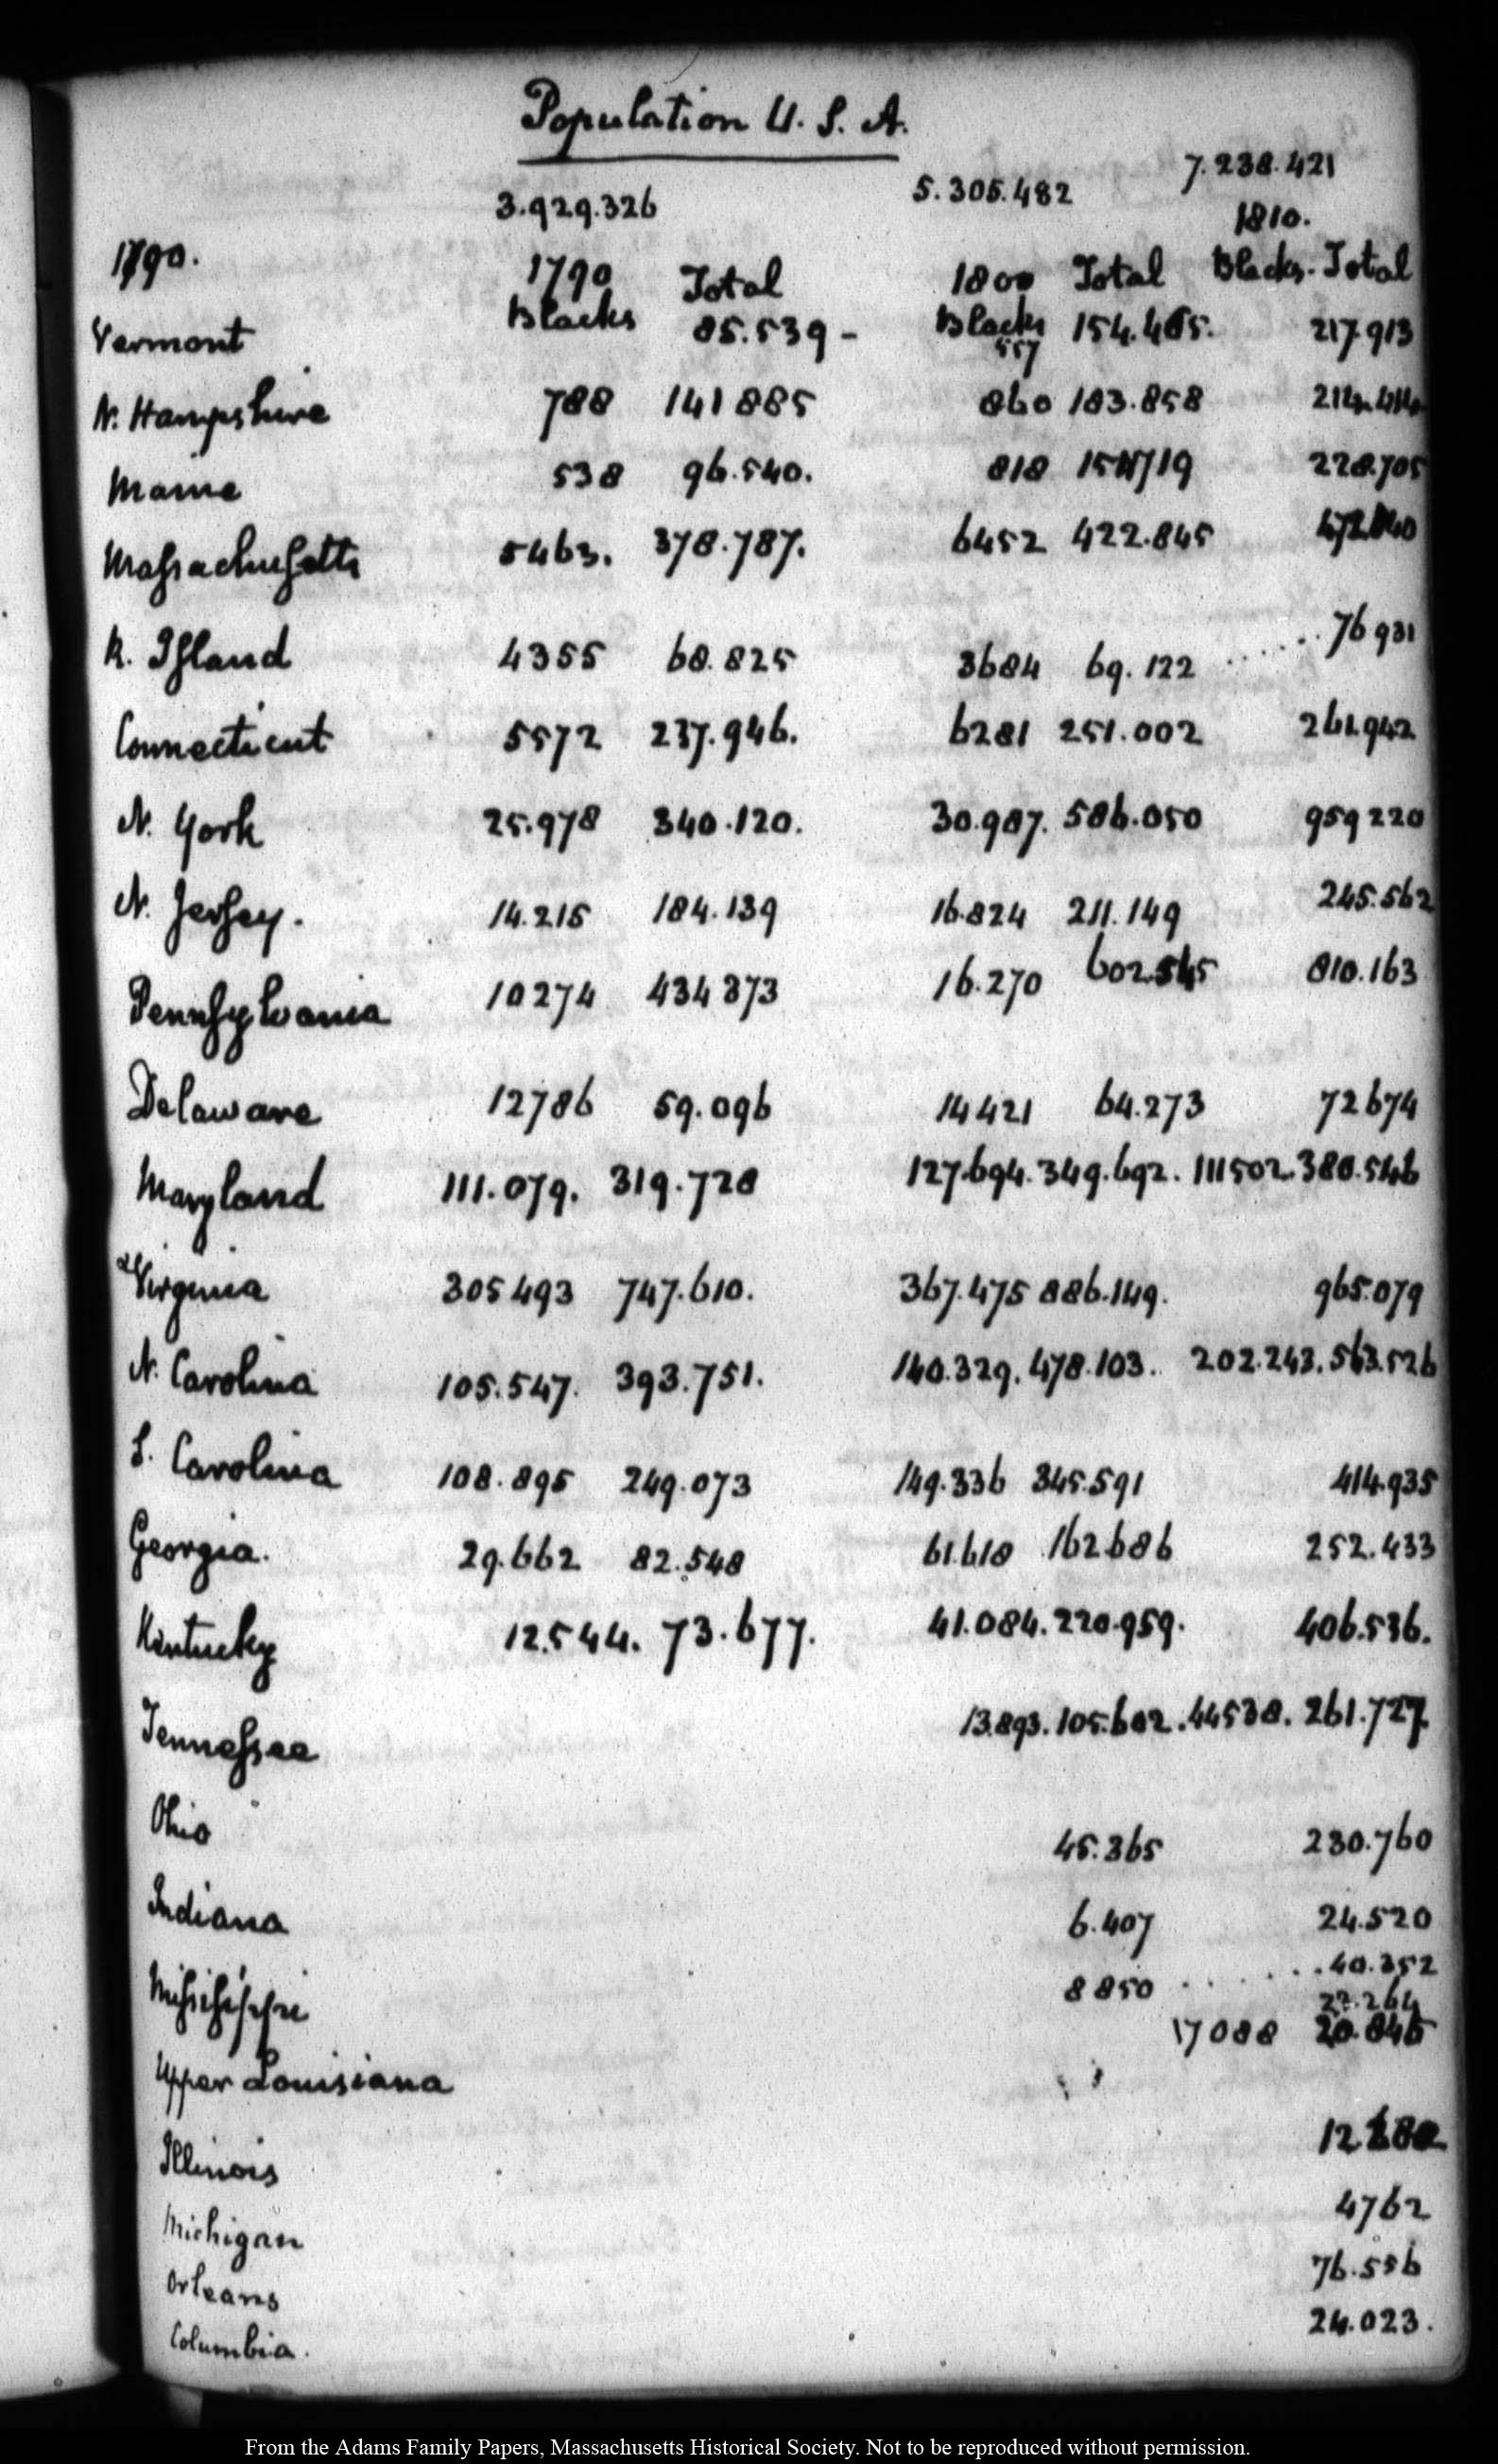 Population U. S. A.
3.929.326 5.305.482 7.238.421
1790. 1790 Total 1800 Total 1810.
Blacks Blacks Blacks. Total
Vermont 85.539 - 557 154.465. 217.913
N. Hampshire 788 141 885 860 183.858 214.414
Maine 538 96.540. 818 719 228.705
Massachusetts 5463. 378.787. 6452 422.845 472.040
R. Island 4355 68.825 3684 69.122 ....... 76 931
Connecticut 5572 237.946. 6281 251.002 261.942
N. York 25.978 340.120. 30.987. 586.050 959 220
N. Jersey. 14.215 184.139 16.824 211.149 245.562
Pennsylvania 10274 434 373 16.270 602.545 810.163
Delaware 12786 59.096 14421 64.273 72674
Maryland 111.079. 319.728 127.694. 349.692. 111502. 380.546
Virginia 305493 747.610. 367.475 886.149. 965.079
N. Carolina 105.547. 393.751. 140.329. 478.103. 202.243. 563.526
S. Carolina 108.895 249.073 149.336 345.591 414.935
Georgia. 29.662 82.548 61.618 162686 252.433
Kintucky 12.544. 73.677. 41.084. 220.959. 406.536.
Tennessee 13.893. 105.602. 44538. 261.727.
Ohio 45.365 230.760
Indiana 6.407 24.520
Missisippi 8850 ....... 40.352
22.264
Upper Louisiana 17088 20.845
Illinois 12.282
Michigan 4762
Orleans 76.556
Columbia. 24.023.
From the Adams Family Papers, Massachusetts Historical Society. Not to be reproduced without permission.